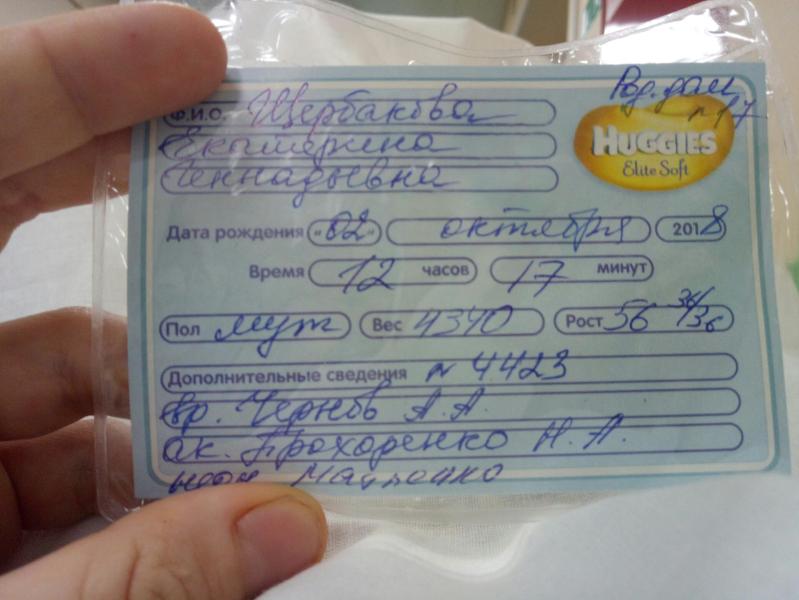 Род. дом
№17
HUGGIES
Elite Soft
Ф.И.О. Щербакова
Екатерина
Геннадьевна
Дата рождения «02» октября 2018
Время 12 часов 17 минут
Пол муж Вес 4340 Рост 56 36/36
Дополнительные сведения № 4423
вр. Чернов А.А.
ак. Прохоренко Н.А.
неон.